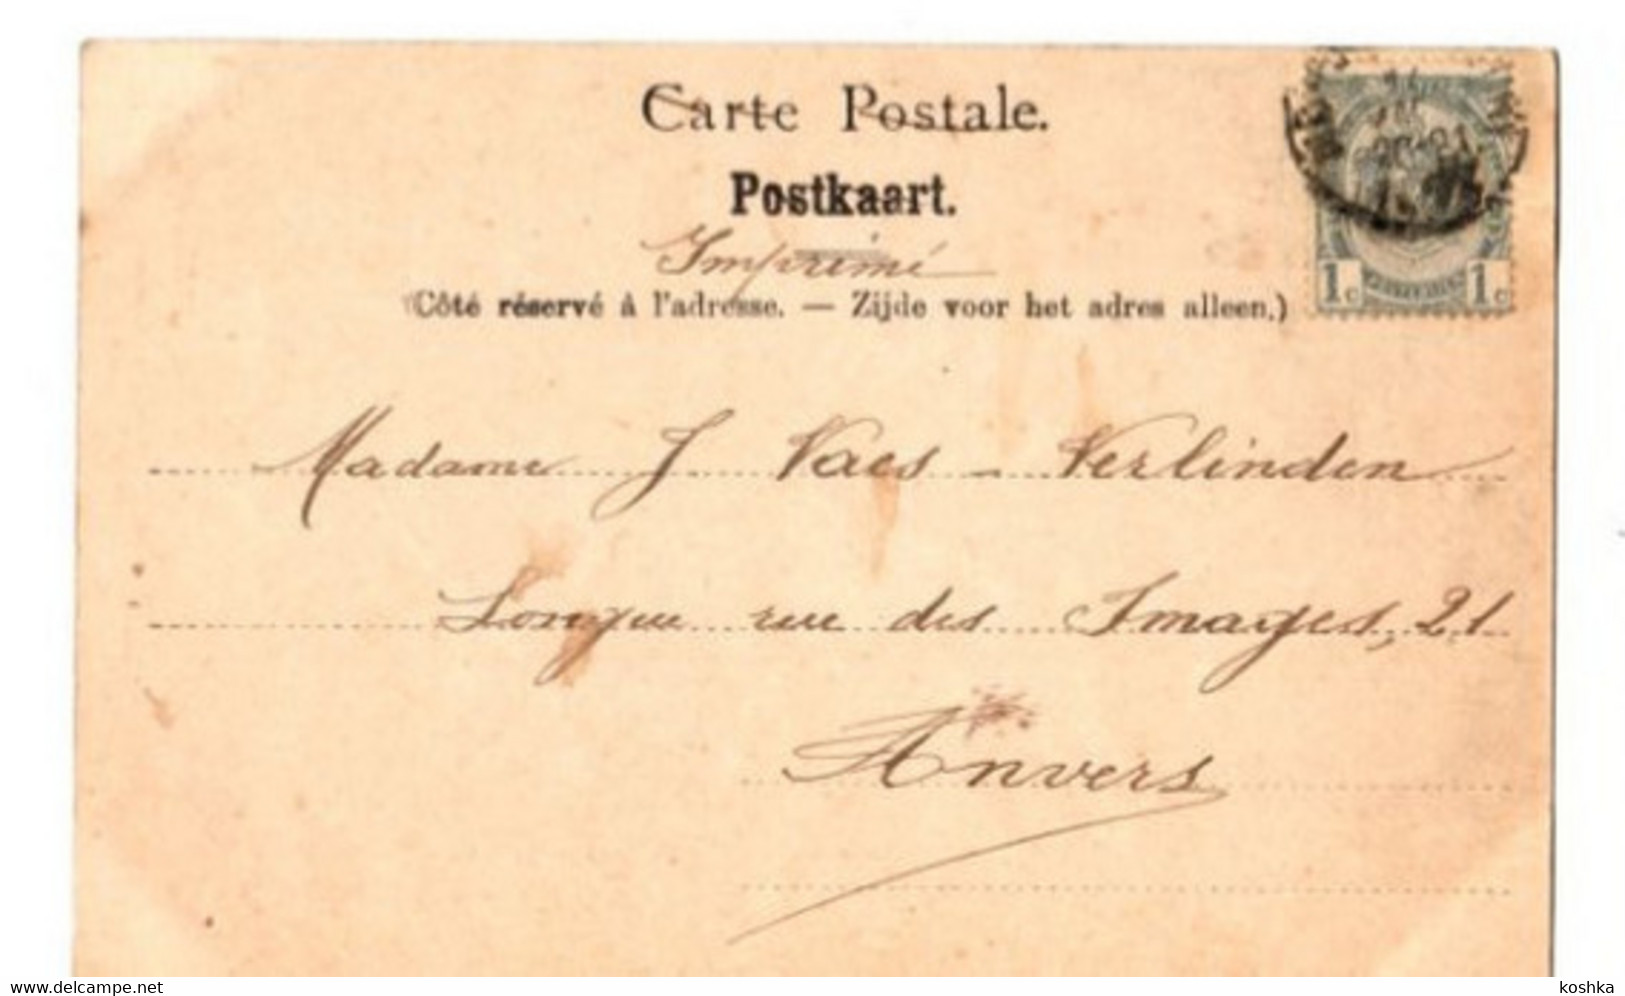 Carte Postale.
Postkaart.
Imprimé
(Côté réservé à l'adresse. — Zijde voor het adres alleen.)
1c 1c
Madame J Vaes - Verlinden
Longue rue des Images, 21
Anvers
www.delcampe.net
koshka